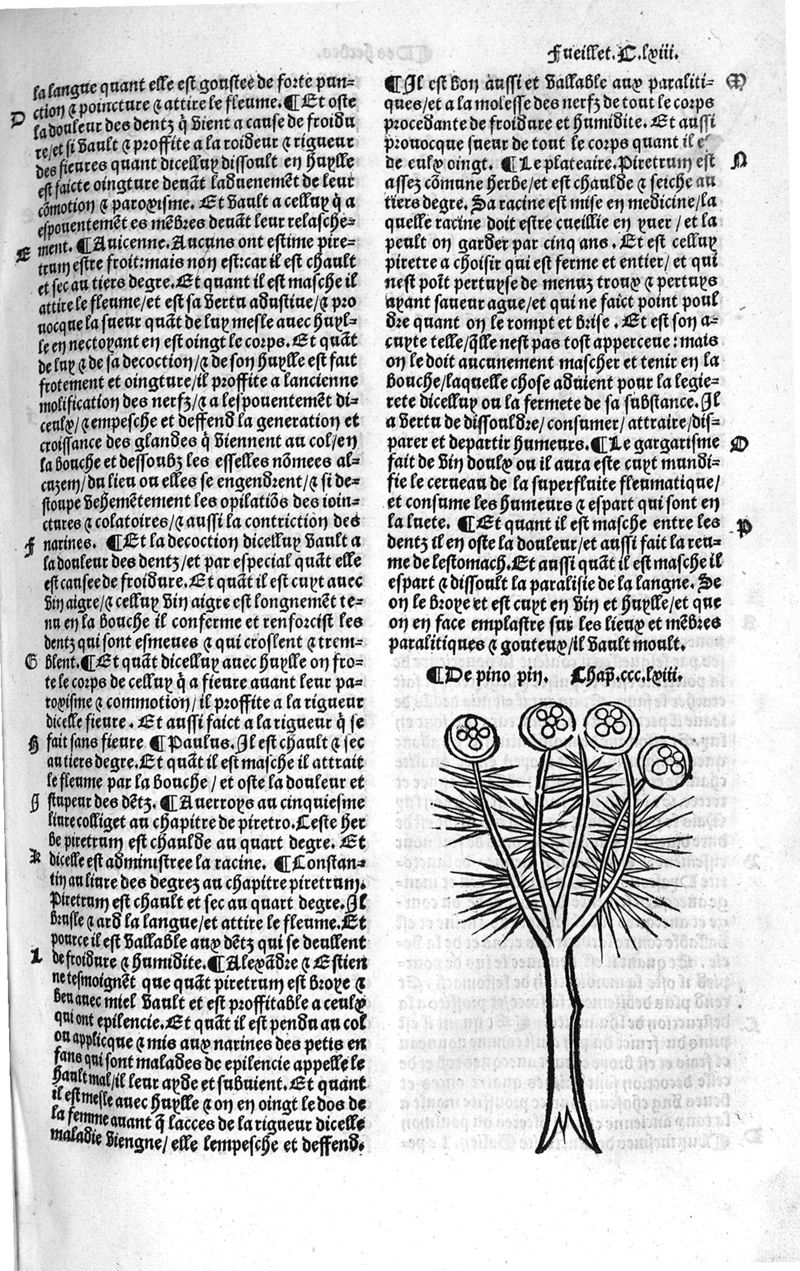 Fueillet. C. lxiii.
la langue quant elle est goustee de forte pun-
D
ction ⁊ poincture ⁊ attire le fleume. ¶Et oste
la douleur des dentz q̃ vient a cause de froidu
re/et si vault ⁊ proffite a la roideur ⁊ rigueur
des fieures quant dicelluy dissoult en huylle
est faicte oingture deuãt laduenemẽt de leur
cõmotion ⁊ paroxisme. Et vault a celluy q̃ a
espouentement es mẽbres deuãt leur relasche-
E
ment. ¶Auicenne. Aucuns ont estime pire-
trum estre froit: mais non est: car il est chault
et sec au tiers degre. Et quant il est masche il
attire le fleume/et est sa vertu adustiue/⁊ pro
uocque la sueur quãt de luy mesle auec huyl-
le en nectoyant en est oingt le corps. Et quãt
de luy ⁊ de sa decoction/⁊ de son huylle est fait
frotement et oingture/il proffite a lancienne
molification des nerfz/⁊ a lespouentement di-
ceulx/⁊ empesche et deffend la generation et
croissance des glandes q̃ viennent au col/en
la bouche et dessoubz les esselles nõmees al-
cuzem/du lieu ou elles se engendrent/⁊ si de-
stoupe vehemẽtement les opilatiõs des ioin-
ctures ⁊ colatoires/⁊ aussi la contriction des
F
narines. ¶Et la decoction dicelluy vault a
la douleur des dentz/et par especial quãt elle
est causee de froidure. Et quãt il est cuyt auec
vin aigre/⁊ celluy vin aigre est longnemẽt te-
nu en la bouche il conferme et renforcist les
dentz qui sont esmeues ⁊ qui croslent ⁊ trem-
G
blent. ¶Et quãt dicelluy auec huylle on fro-
te le corps de celluy q̃ a fieure auant leur pa-
roxisme ⁊ commotion/il proffite a la rigueur
dicelle fieure. Et aussi faict a la rigueur q̃ se
H
fait sans fieure ¶Paulus. Il est chault ⁊ sec
au tiers degre. Et quãt il est masche il attrait
le fleume par la bouche/et oste la douleur et
I
stupeur des dẽtz. ¶Auerroys au cinquiesme
liure colliget au chapitre de piretro. Ceste her
be piretrum est chaulde au quart degre. Et
K
dicelle est administree la racine. ¶Constan-
tin au liure des degrez au chapitre piretrum.
Piretrum est chault et sec au quart degre. Il
brusle ⁊ ard la langue/et attire le fleume. Et
pource il est vallable aux dẽtz qui se deullent
L
de froidure ⁊ humidite. ¶Alexãdre ⁊ Estien
ne tesmoignẽt que quãt piretrum est broye ⁊
beu auec miel vault et est proffitable a ceulx
qui ont epilencie. Et quãt il est pendu au col
ou applicque ⁊ mis aux narines des petis en
fans qui sont malades de epilencie appelle le
hault mal/il leur ayde et subuient. Et quant
il est mesle auec huylle ⁊ on en oingt le dos de
la femme auant q̃ lacces de la rigueur dicelle
maladie viengne/elle lempesche et deffend.
¶Il est bon aussi et vallable aux paraliti-
M
ques/et a la molesse des nerfz de tout le corps
procedante de froidure et humidite. Et aussi
prouocque sueur de tout le corps quant il
de eulx oingt. ¶Le plateaire. Piretrum est
N
assez cõmune herbe/et est chaulde ⁊ seiche au
tiers degre. Sa racine est mise en medicine/la
quelle racine doit estre cueillie en yuer/et la
peult on garder par cinq ans. Et est celluy
piretre a choisir qui est ferme et entier/et qui
nest poĩt pertuyse de menuz troux ⁊ pertuys
ayant saueur ague/et qui ne faict point poul
dre quant on le rompt et brise. Et est son a-
cuyte telle/q̃lle nest pas tost apperceue: mais
on le doit aucunement mascher et tenir en la
bouche/laquelle chose aduient pour la legie-
rete dicelluy ou la fermete de sa substance. Il
a vertu de dissouldre/consumer/attraire/dis-
parer et departir humeurs. ¶Le gargarisme
O
fait de vin doulx ou il aura este cuyt mundi-
fie le cerueau de la superfluite fleumatique/
et consume les humeurs ⁊ espart qui sont en
la luete. ¶Et quant il est masche entre les
P
dentz il en oste la douleur/et aussi fait la reu-
me de lestomach. Et aussi quãt il est masche il
espart ⁊ dissoult la paralisie de la langne. Se
on le broye et est cuyt en vin et huylle/et que
on en face emplastre sur les lieux et mẽbres
paralitiques ⁊ gouteux/il vault moult.
¶De pino pin. Chap̃. ccc. lxiii.